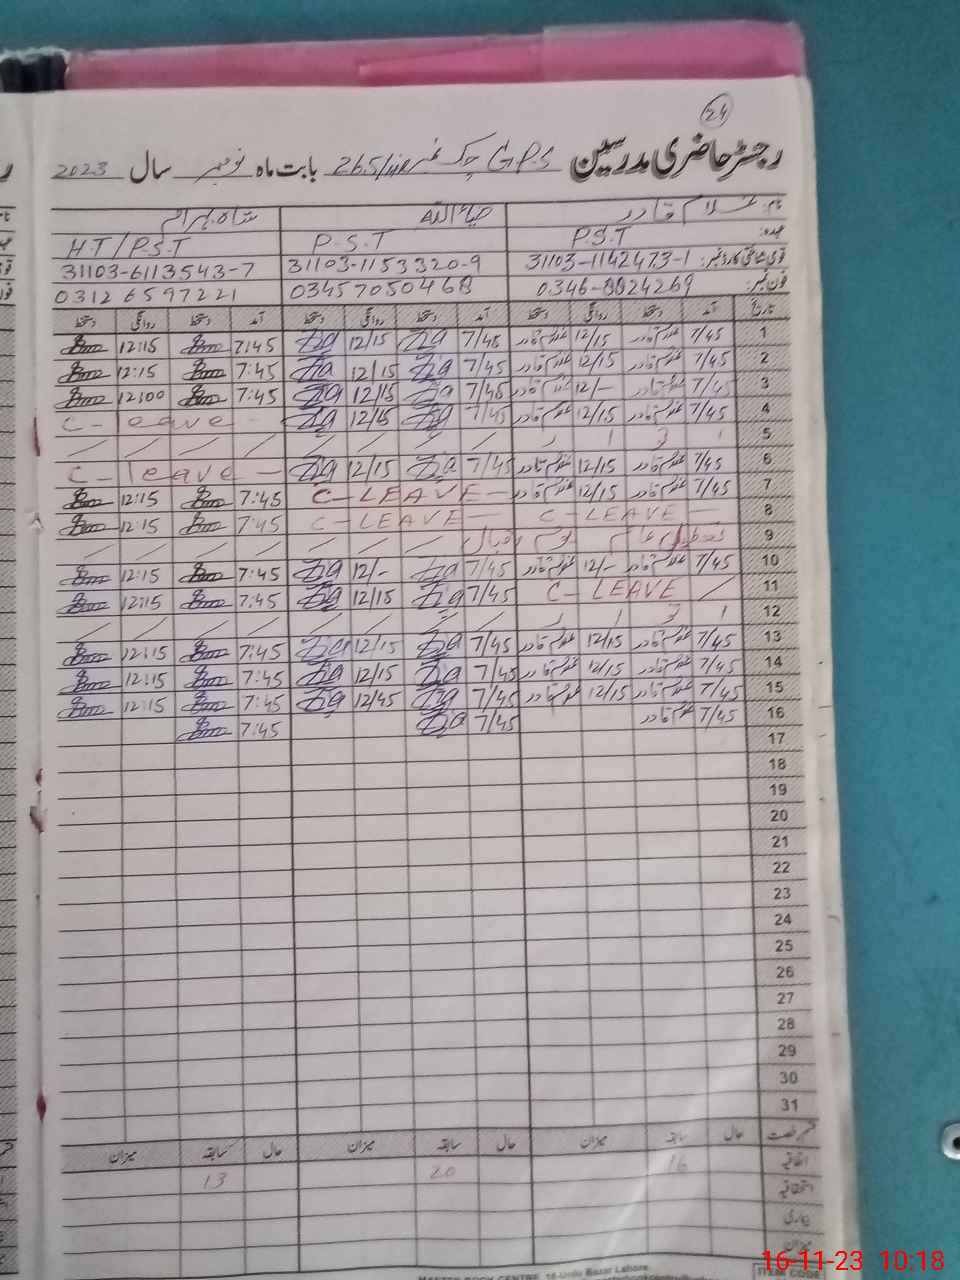 24
رجسٹر حاضری مدرسین GPS چک نمبر 265/ بابت ماہ نومبر سال 2023
نام: غلام قادر ضیاء اللہ
عہدہ: P.S.T P-S.T H.T/P.S.T
قومی شناختی کارڈ نمبر: 31103-1142473-1 31103-1153320-9 31103-6113543-7
فون نمبر: 0346-8824269 03457050468 03126597221
تاریخ آمد دستخط روانگی دستخط آمد دستخط روانگی دستخط آمد دستخط روانگی دستخط
1 7/45 غلام قادر 12/15 غلام قادر 7/45 12/15 7:45 12:15
2 7/45 غلام قادر 12/15 غلام قادر 7/45 12/15 7:45 12:15
3 7/45 غلام قادر 12/- غلام قادر 7/45 12/15 7:45 12:00
4 7/45 غلام قادر 12/15 غلام قادر 7/45 12/15 C-leave
5
6 7/45 غلام قادر 12/15 غلام قادر 7/45 12/15 C-leave
7 7/45 غلام قادر 12/15 غلام قادر C-LEAVE 7:45 12:15
8 C-LEAVE C-LEAVE 7:45 12:15
9 تعطیل عام یوم اقبال
10 7/45 غلام قادر 12/- غلام قادر 7/45 12/- 7:45 12:15
11 C-LEAVE 7/45 12/15 7:45 12:15
12
13 7/45 غلام قادر 12/15 غلام قادر 7/45 12/15 7:45 12:15
14 7/45 غلام قادر 12/15 غلام قادر 7/45 12/15 7:45 12:15
15 7/45 غلام قادر 12/15 غلام قادر 7/45 12/45 7:45 12:15
16 7/45 غلام قادر 7/45 7:45
17
18
19
20
21
22
23
24
25
26
27
28
29
30
31
قسم رخصت حال سابقہ میزان حال سابقہ میزان حال سابقہ میزان
اتفاقیہ 16 20 13
استحقاقیہ
بیماری
میزان
MASTER BOOK CENTRE, 16-Urdu Bazar Lahore.
ITEM CODE
16-11-23 10:18